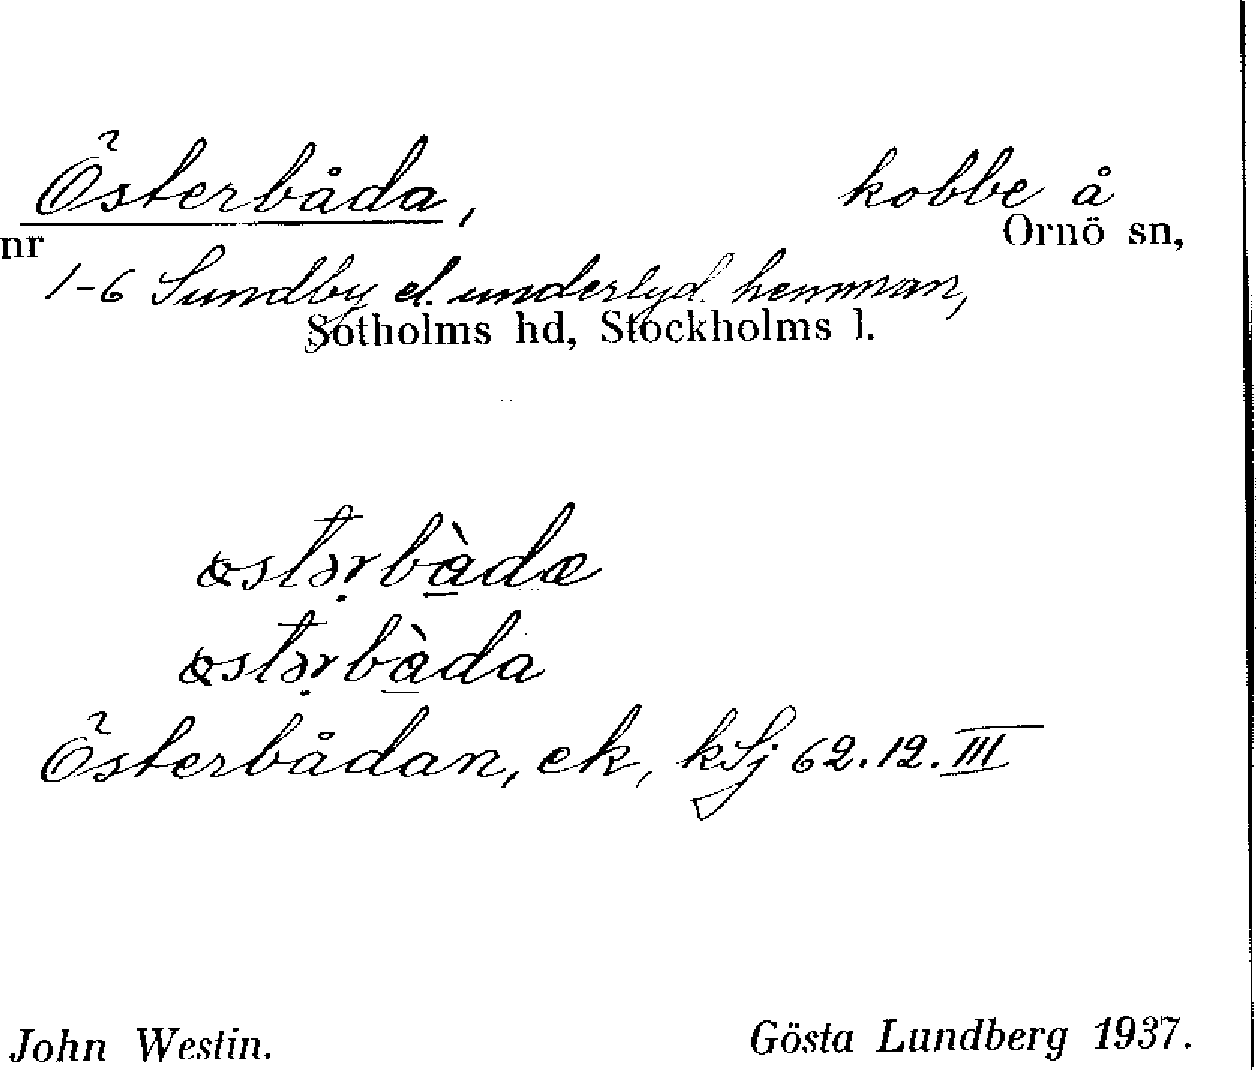 Österbåda, kobbe å
nr Ornö sn,
1-6 Sundby el. underlyd. hemman,
Sotholms hd, Stockholms l.
Österbådan, ek, kSj 62.12.III
John Westin. Gösta Lundberg 1937.